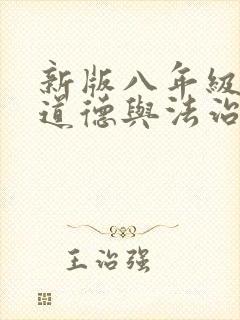 新版八年級
道德與法治
王治强